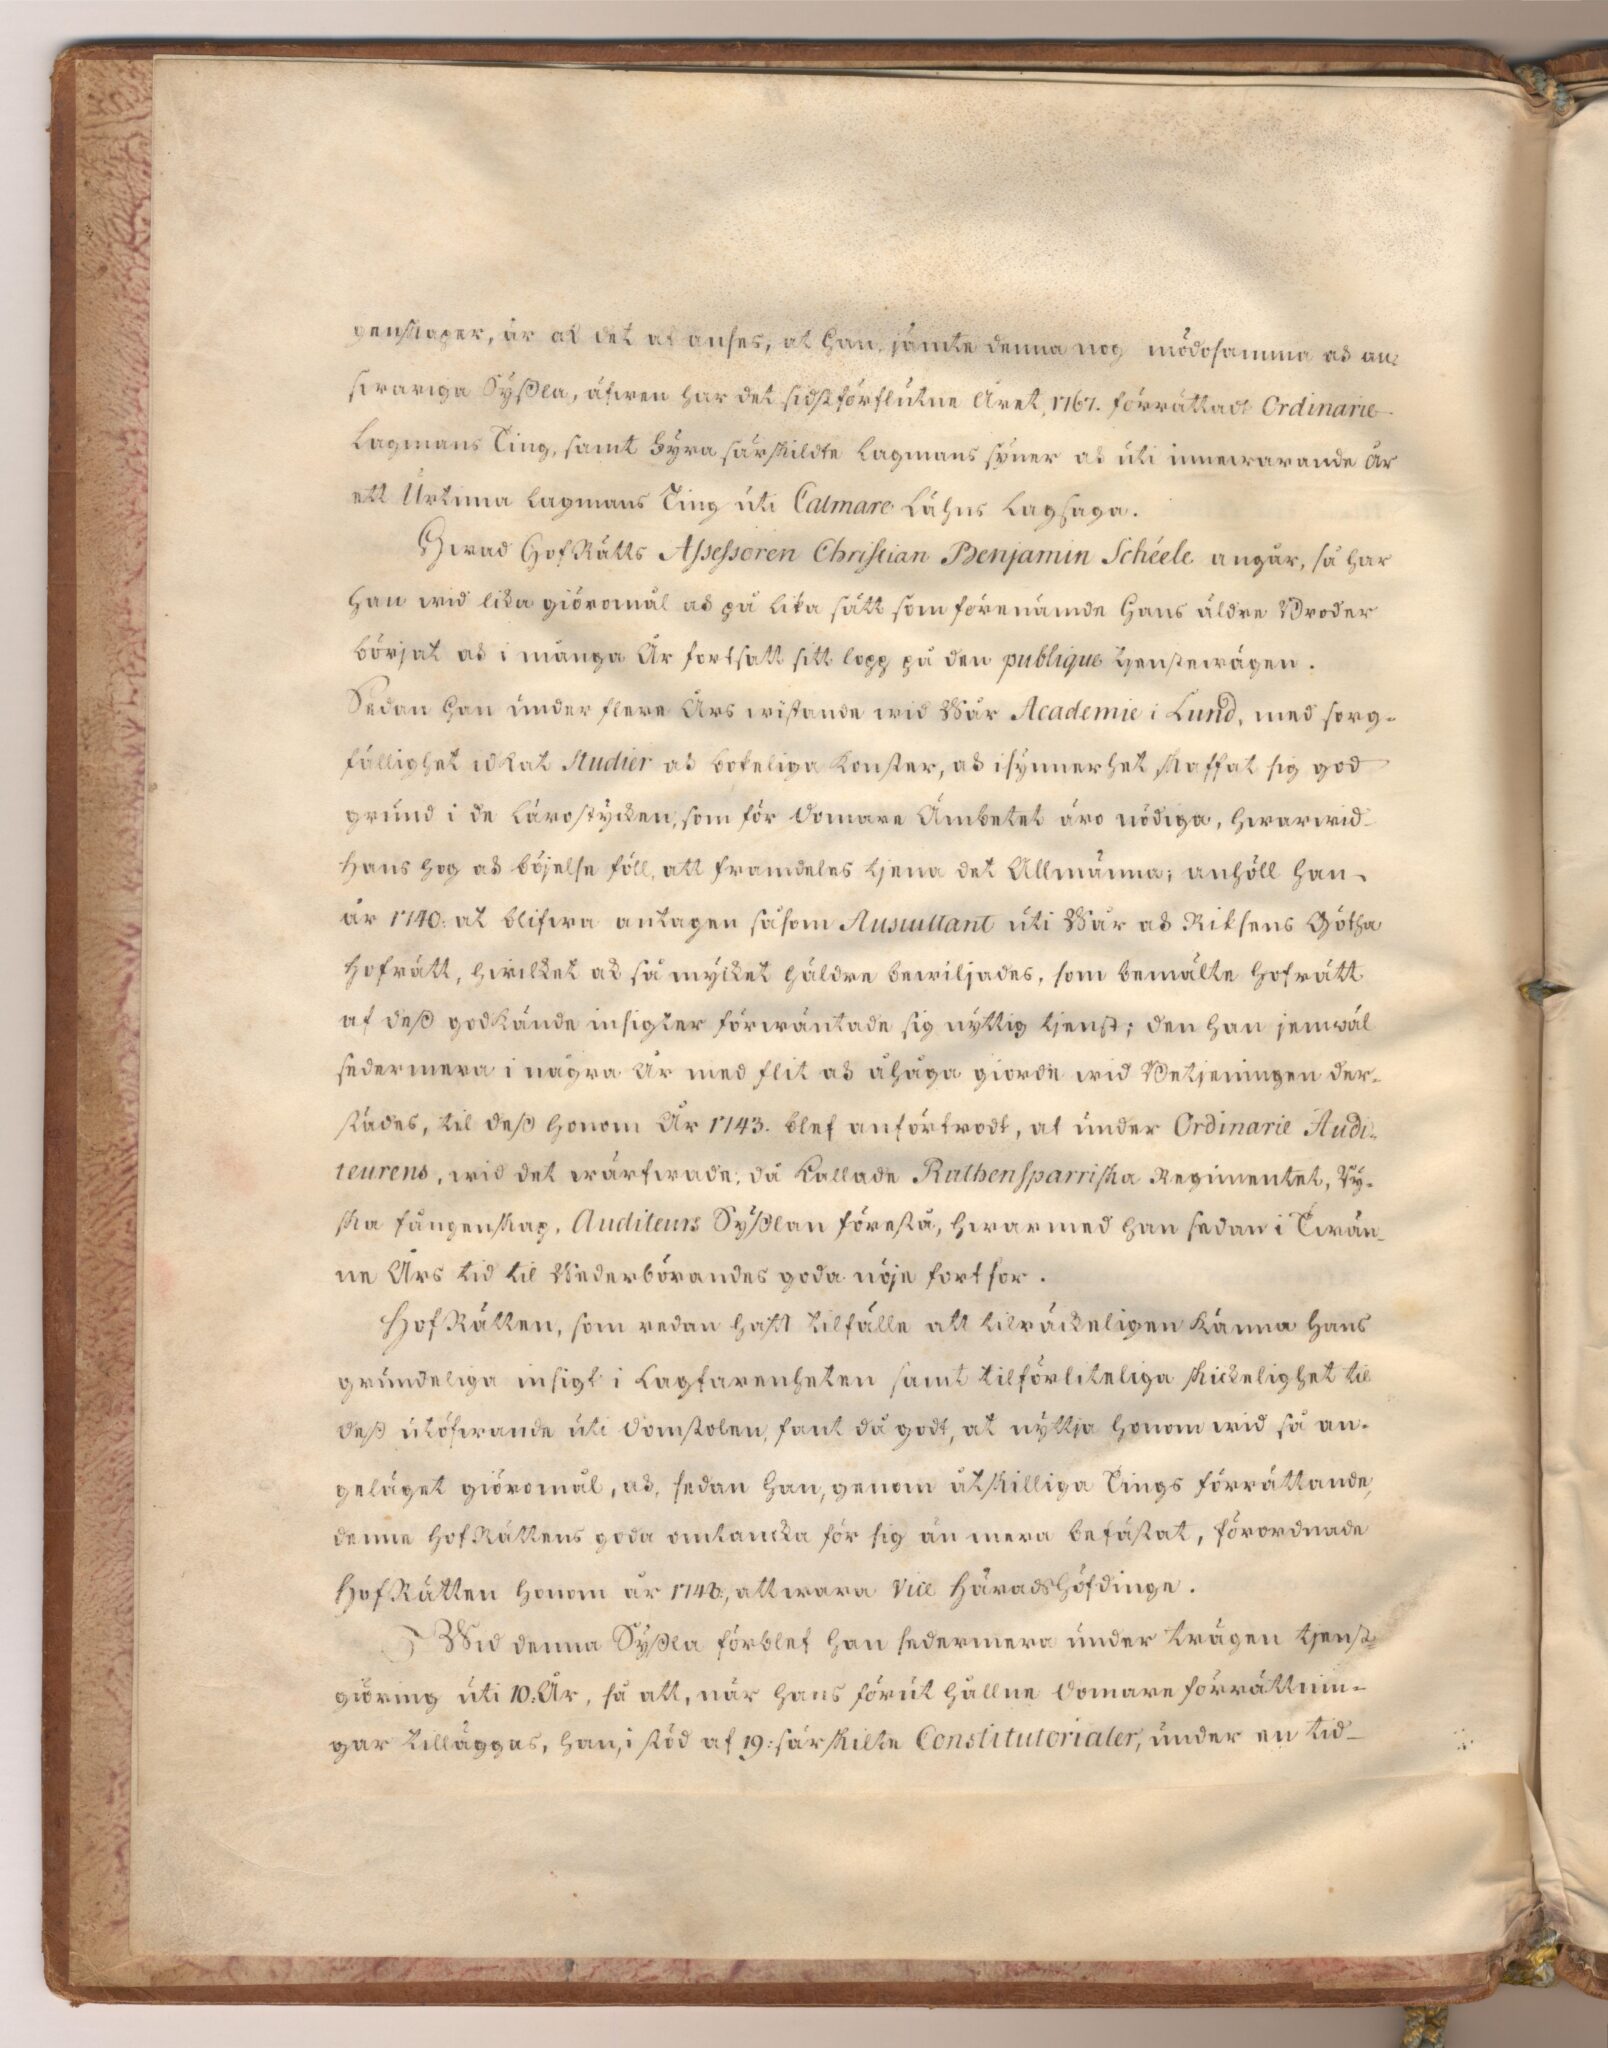 genskaper, är ock det at anses, at Han, jämte denna nog mödosamma och an-
swariga Syßla, äfwen har det sidstförflutne Året, 1767. förrättadt Ordinarie
Lagmans Ting, samt Fyra särskildte Lagmans syner och uti innewarande År
ett Urtima Lagmans Ting uti Calmare Lähns Lagsaga.
Hwad HofRätts Assessoren Christian Benjamin Schéele angår, så har
Han wid lika giöromål och på lika sätt som förenämde Hans äldre Broder
börjat och i många År fortsatt sitt lopp på den publique tjenstewägen.
Sedan Han under flere Års wistande wid Wår Academie i Lund, med sorg-
fällighet idkat Studier och bokeliga konster, och isynnerhet skaffat sig god
grund i de Lärostycken, som för Domare Ämbetet äro nödiga, hwarwid
Hans hog och böjelse föll, att framdeles tjena det Allmänna; anhöll Han
år 1740. at blifwa antagen såsom Auscultant uti Wår och Riksens Götha
Hofrätt, hwilket ock så mycket häldre bewiljades, som bemälte Hofrätt
af deß godkände insigter förwäntade sig nyttig tjenst; den Han jemwäl
sedermera i några År med flit och åhåga giorde wid Betjeningen der-
städes, til deß Honom År 1743. blef anförtrodt, at under Ordinarie Audi-
teurens, wid det wärfwade, då kallade Ruthensparriska Regimentet, Ry-
ska fångenskap, Auditeurs Syßlan förestå, hwarmed Han sedan i Twän-
ne Års tid til Wederbörandes goda nöje fortfor.
HofRätten, som redan haft tilfälle att tilräckeligen känna Hans
grundeliga insigt i Lagfarenheten samt tilförliteliga skickelighet til
deß utöfwande uti Domstolen, fant då godt, at nyttja Honom wid så an-
geläget giöromål, och, sedan Han, genom åtskilliga Tings förrättande,
denne HofRättens goda omtancka för sig än mera befästat, förordnade
HofRätten Honom år 1748., att wara Vice HäradsHöfdinge.
Wid denna Syßla förblef Han sedermera under trägen tjenst-
giöring uti 10. År, så att, när Hans förut hållne Domare förrättnin-
gar tilläggas, Han, i stöd af 19: särskilte Constitutorialer, under en tid